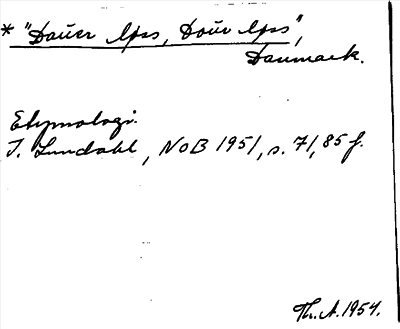 * "Daŭer lyss, Doŭr lyss",
Danmark.
Etymologi.
I. Lundahl, NoB 1951, s. 71, 85 f.
Th. A. 1954.